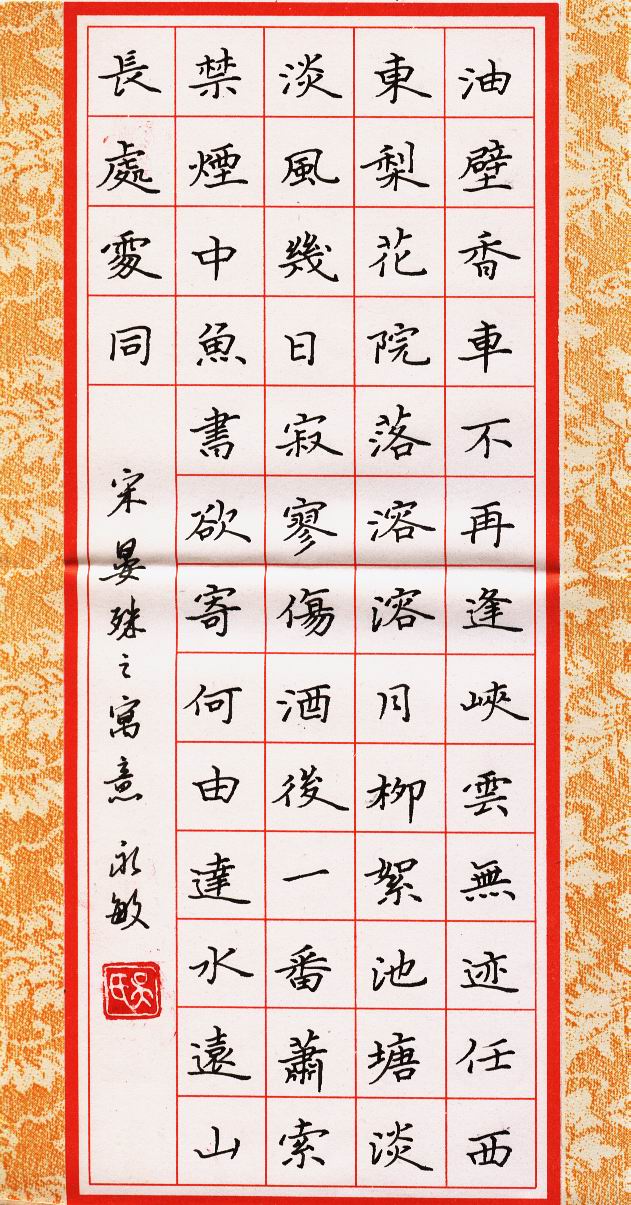 油壁香車不再逢峽雲無迹任西
東梨花院落溶溶月柳絮池塘淡
淡風幾日寂寥傷酒後一番蕭索
禁煙中魚書欲寄何由達水遠山
長處處同
宋晏殊之寓意 永敏